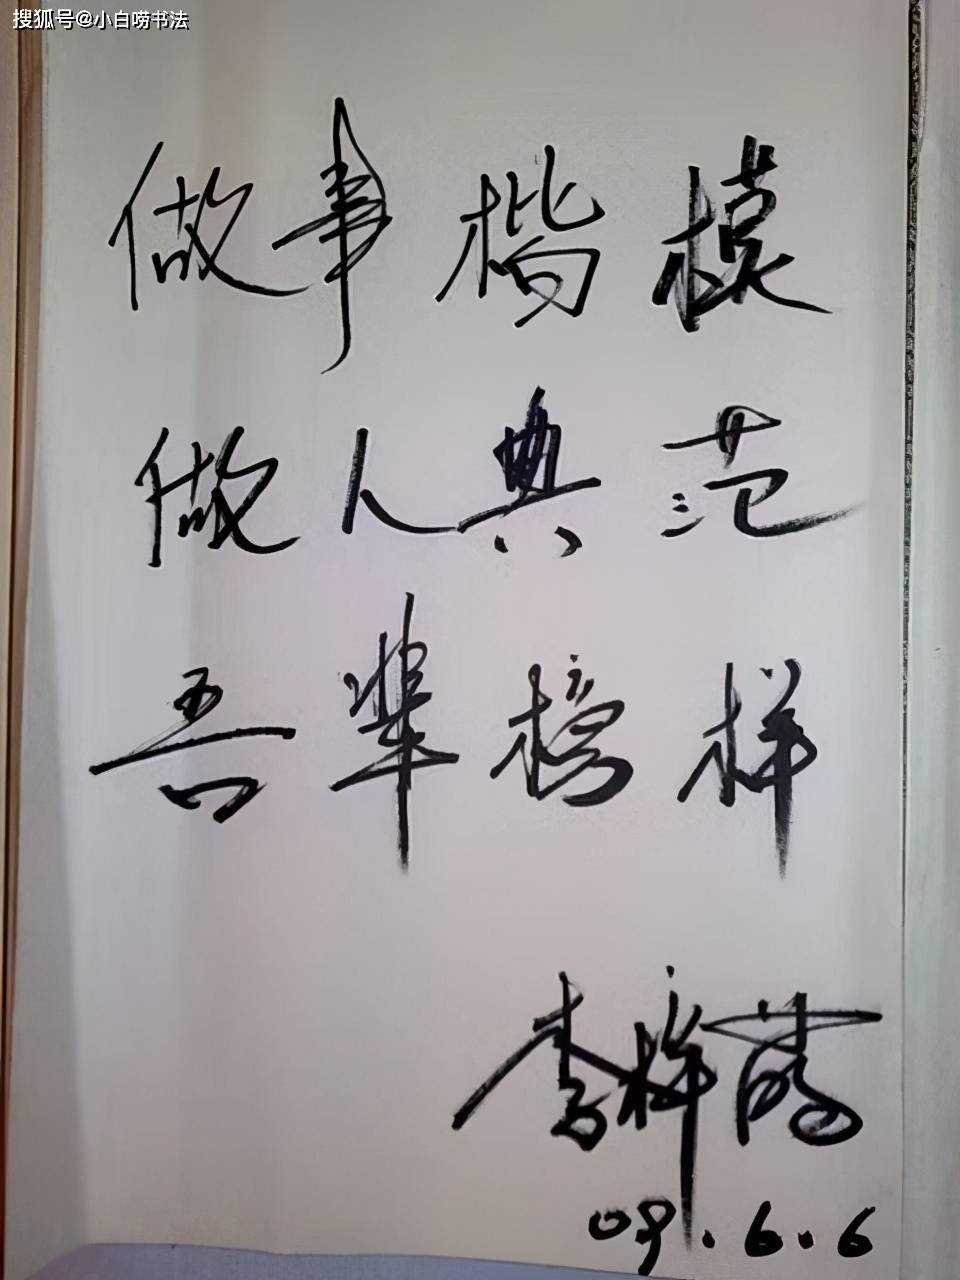 搜狐号@小白唠书法
做事楷模
做人典范
吾辈榜样
李祥霆
09.6.6